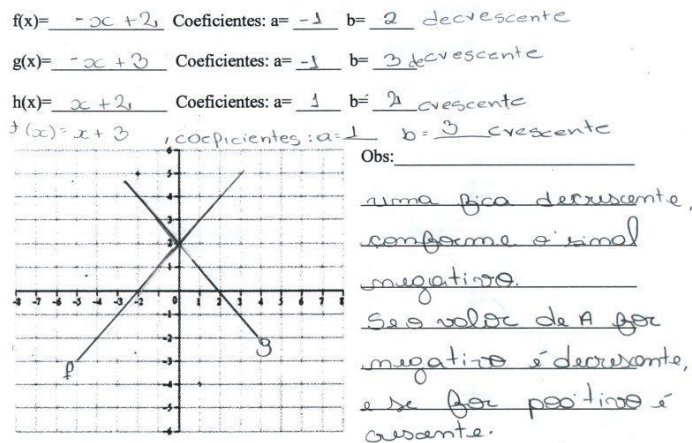 f(x)= -x + 2 Coeficientes: a= -1 b= 2 decrescente
g(x)= -x + 3 Coeficientes: a= -1 b= 3 decrescente
h(x)= x + 2 Coeficientes: a= 1 b= 2 crescente
(x) = x + 3 , coeficientes: a= 1 b = 3 crescente
Obs:
uma fica decrescente,
conforme o sinal
negativo.
Se o valor de A for
negativo é decrescente,
e se for positivo é
crescente.
6
5
4
3
2
1
-8 -7 -6 -5 -4 -3 -2 -1 0 1 2 3 4 5 6 7 8
-1
-2
g
-3
f
-4
-5
-6